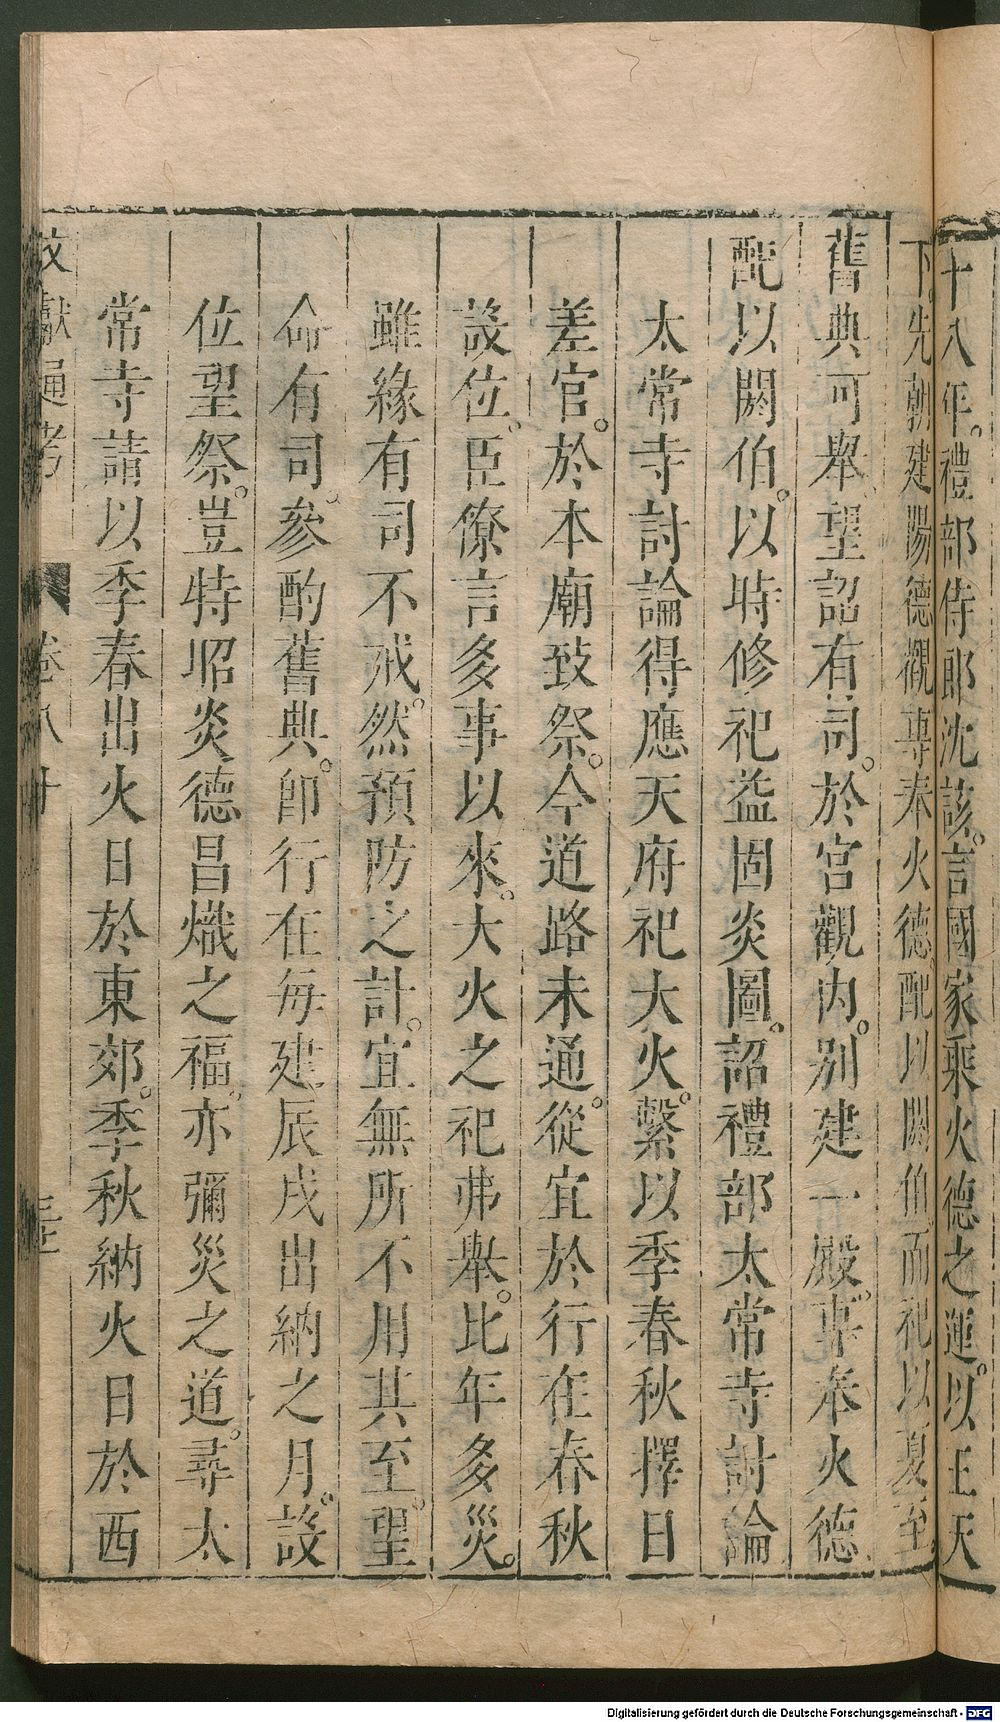 十八年。禮部侍郎沈該。言國家乘火德之運。以王天
下。先朝建陽德觀。專奉火德。配以閼伯。而祀以夏至。
舊典可舉。望詔有司。於宮觀內。別建一殿。專奉火德
配以閼伯。以時修祀益固炎圖。詔禮部太常寺討論
太常寺討論得應天府祀大火。繫以季春秋擇日
差官。於本廟致祭。今道路未通。從宜於行在春秋
設位。臣僚言多事以來。大火之祀弗舉。比年多災。
雖緣有司不戒。然預防之計。宜無所不用其至。望
命有司。參酌舊典。卽行在每建辰戌出納之月。設
位望祭。豈特昭炎德昌熾之福。亦彌災之道。尋太
常寺請以季春出火日於東郊。季秋納火日於西
文獻通考 卷八十
Digitalisierung gefördert durch die Deutsche Forschungsgemeinschaft - DFG